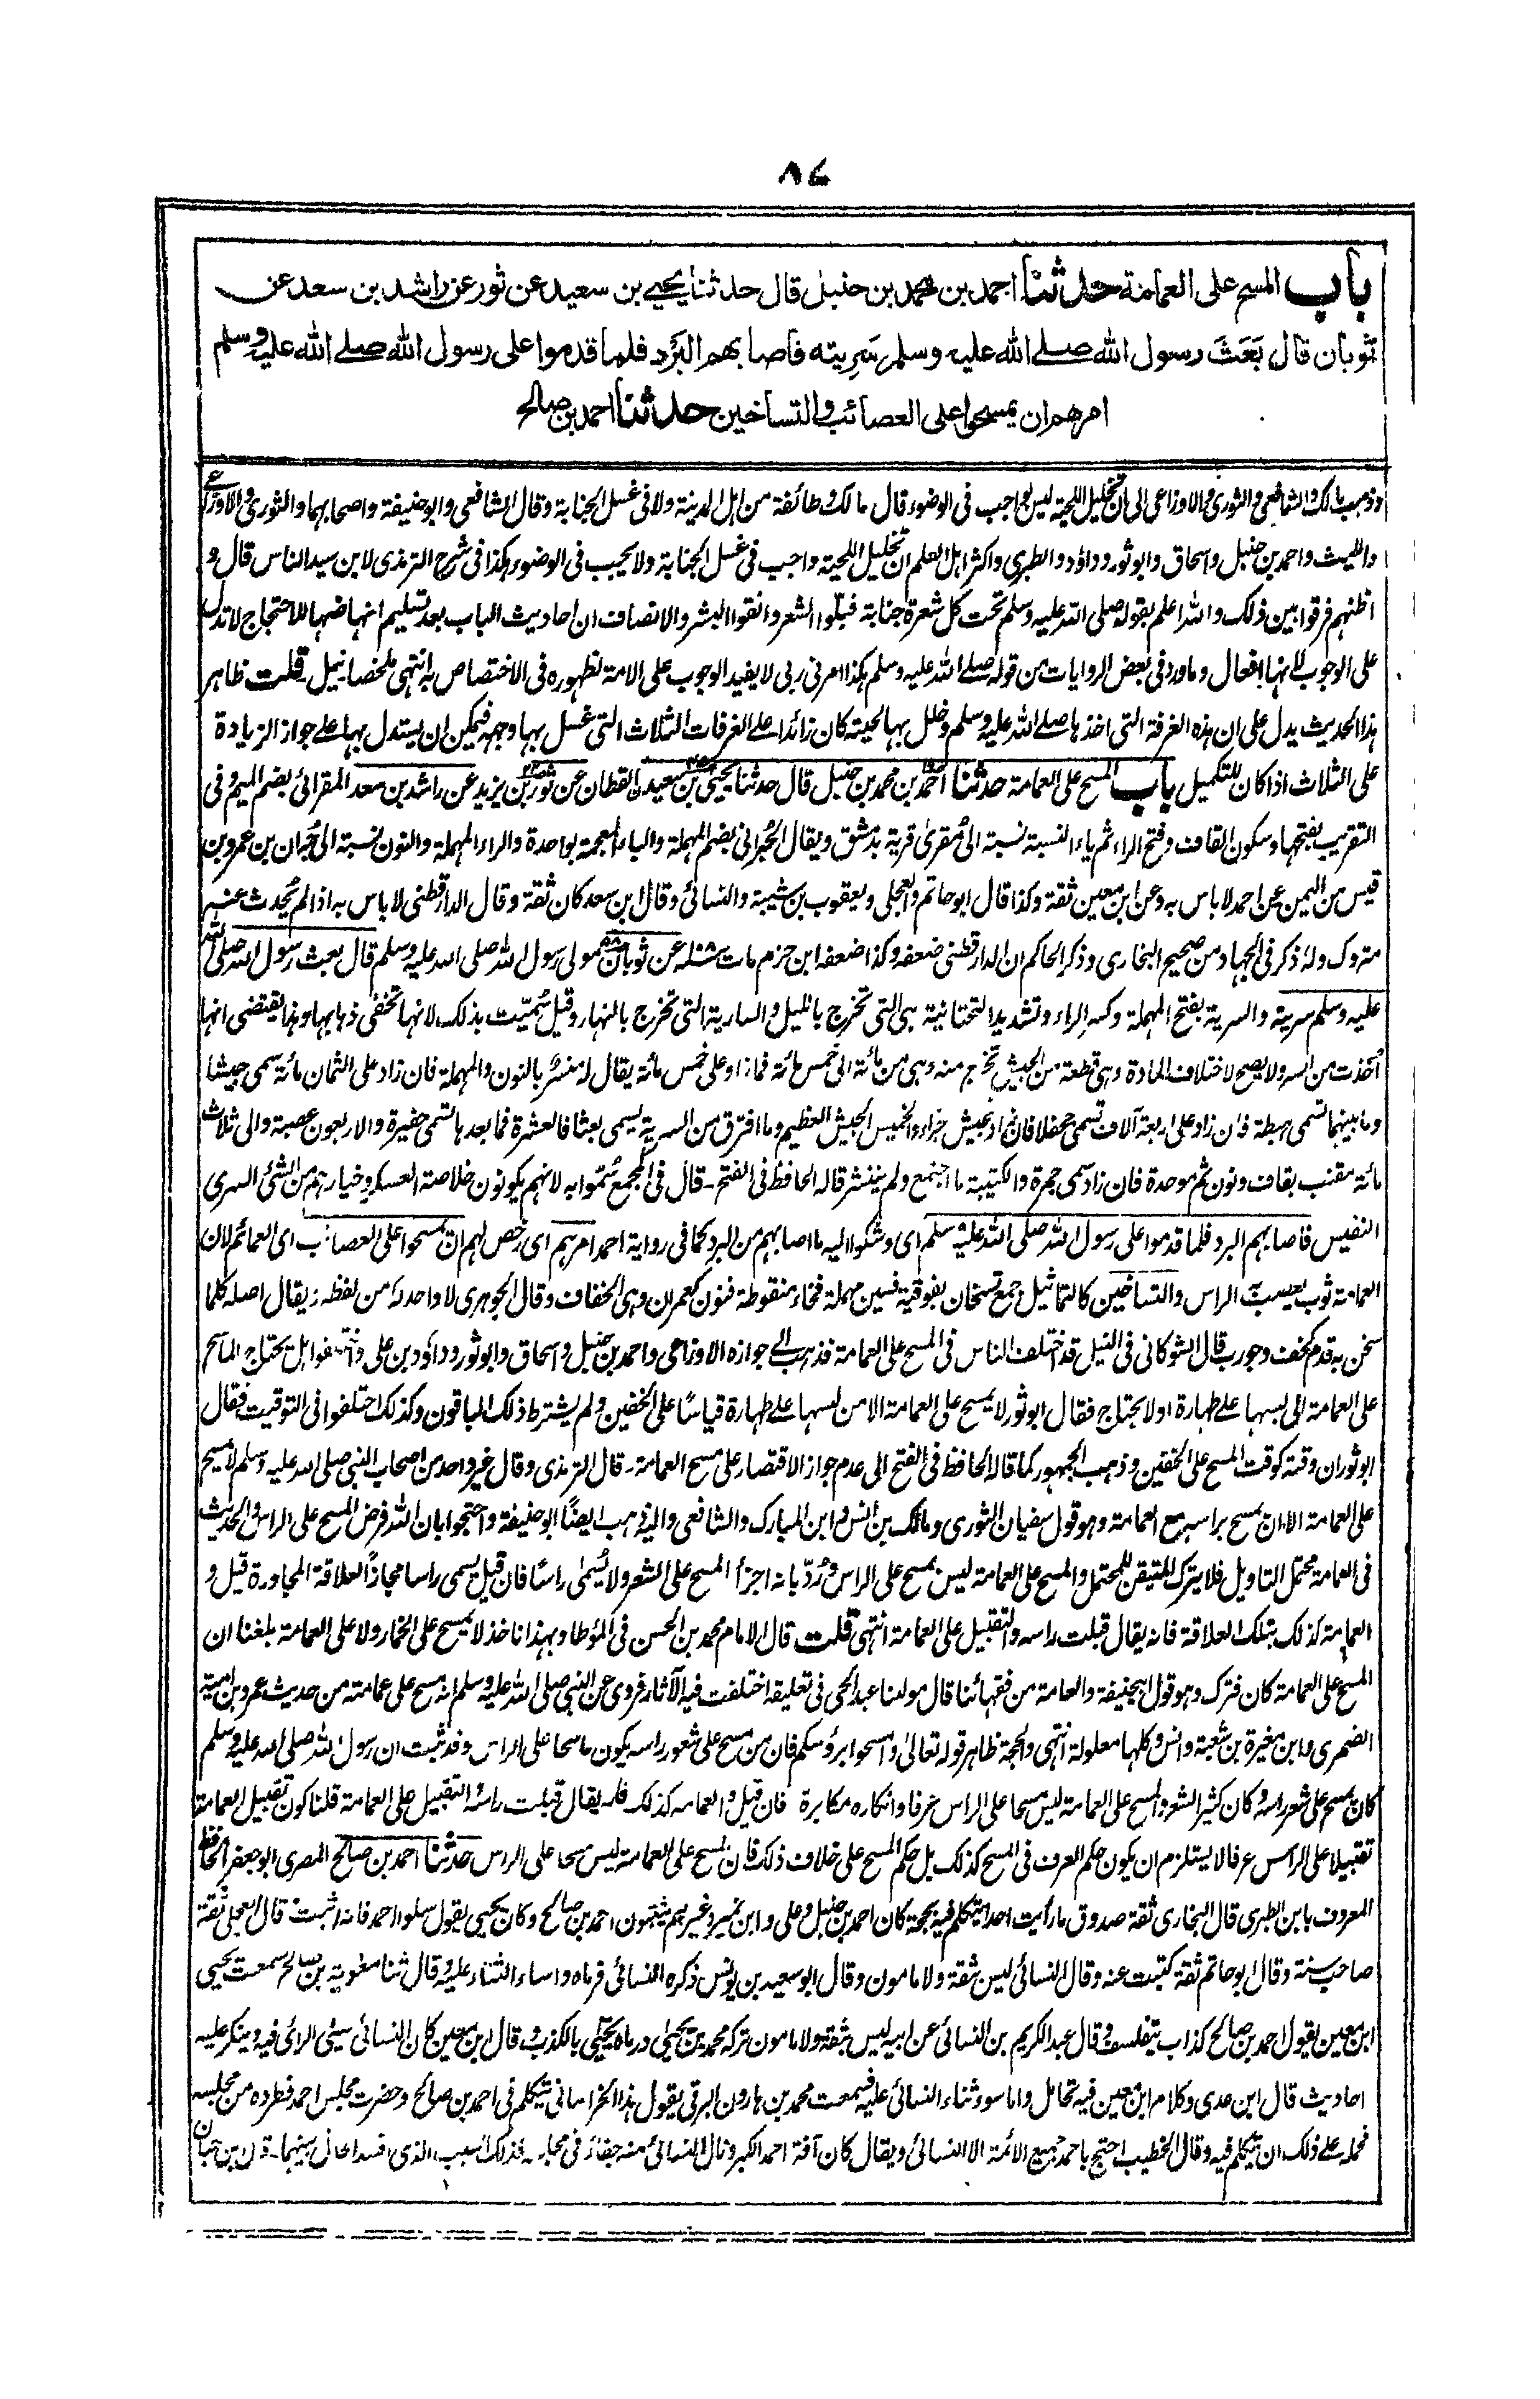 ٨٤
باب المسح على العمامة حدثنا احمد بن محمد بن حنبل قال حدثنا يحيى بن سعيد عن ثور عن راشد بن سعد عن
ثوبان قال بَعَثَ رسول الله صلے الله عليه وسلم سَرِيته فاصابهم البَرْد فلما قدموا على رسول الله صلے الله عليه وسلم
امرهم ان يمسحوا على العصائب والتساخين حدثنا احمد بن صالح
وذهب مالك والشافعي والثوري والاوزاعي الى ان تخليل اللحية ليس بواجب في الوضوء قال مالك وطائفة من اهل المدينة ولا في غسل الجنابة وقال الشافعي وابو حنيفة واصحابهما والثوري والاوزاعي
والليث واحمد بن حنبل واسحاق وابو ثور وداؤد والطبري واكثر اهل العلم ان تخليل اللحية واجب في غسل الجنابة ولا يجب في الوضوء هكذا في شرح الترمذي لابن سيد الناس قال و
اظنهم فرقوا بين ذلك والله اعلم بقوله صلى الله عليه وسلم تحت كل شعرة جنابة فبلّوا الشعر وانقوا البشر والانصاف ان احاديث الباب بعد تسليم انتهاضها للاحتجاج لا تدل
على الوجوب لانها افعال وما ورد في بعض الروايات من قوله صلے الله عليه وسلم هكذا امرني ربي لا يفيد الوجوب على الامة لظهوره في الاختصاص به انتهى ملخصا نيل قلت ظاهر
هذا الحديث يدل على ان هذه الغرفة التي اخذها صلے الله عليه وسلم وخلل بها لحيته كان زائدا على الغرفات الثلاث التي غسل بها وجهه فيمكن ان يستدل بها على جواز الزيادة
على الثلاث اذا كان للتكميل باب المسح على العمامة حدثنا احمد بن محمد بن حنبل قال حدثنا يحيى بن سعيد القطان عن ثور بن يزيد عن راشد بن سعد المقرائي بضم الميم وفي
التقريب بفتحها وسكون القاف وفتح الراء ثم ياء النسبة نسبة الى مُقرى قرية بدمشق ويقال الحُبراني بضم المهملة والباء المعجمة بواحدة والراء المهملة والنون نسبة الى حُبران بن عمرو بن
قيس من اليمن عن احمد لا باس به وعن ابن معين ثقة وكذا قال ابو حاتم والعجلي ويعقوب بن شيبة والنسائي وقال ابن سعد كان ثقة وقال الدارقطني لا باس به اذا لم يُحدث عنه
متروك وله ذكر في الجهاد من صحيح البخاري وذكر الحاكم ان الدارقطني ضعفه وكذا ضعفه ابن حزم مات سنة عن ثوبان مولى رسول الله صلى الله عليه وسلم قال بعث رسول الله صلى الله
عليه وسلم سرية والسرية بفتح المهملة وكسر الراء وتشديد التحتانية هي التي تخرج بالليل والسارية التي تخرج بالنهار وقيل سُمّيت بذلك لانها تخفى ذهابها وهذا يقتضي انها
اُخذت من السر ولا يصح لاختلاف المادة وهي قطعة من الجيش تخرج منه وهي من مائة الى خمس مائة فما زاد على خمس مائة يقال له منسر بالنون والمهملة فان زاد على الثمان مائة سمي جيشا
وما بينهما تسمى هبطة فان زاد على اربعة آلاف تسمى جحفلا فان زاد فجيش جرار والخميس الجيش العظيم وما افترق من السرية يسمى بعثا فالعشرة فما بعدها تسمى حفيرة والاربعون عصبة والى ثلاث
مائة مقنب بقاف ونون ثم موحدة فان زاد سمي جمرة والكتيبة ما اجتمع ولم ينتشر قاله الحافظ في الفتح - قال في المجمع سُمّوا به لانهم يكونون خلاصة العسكر وخيارهم من الشئ السري
النفيس فاصابهم البرد فلما قدموا على رسول الله صلى الله عليه وسلم اي وشكوا اليه ما اصابهم من البرد كما في رواية احمد امرهم اي رخص لهم ان يمسحوا على العصائب اي العمائم لان
العمامة ثوب يعصب الراس والتساخين كالتماثيل جمع تسخان بفوقية فسين مهملة فخاء منقوطة فنون كعمران وهي الخفاف وقال الجوهري لا واحد له من لفظه ويقال اصله كلما
سخن به قدم كخف وجورب قال الشوكاني في النيل قد اختلف الناس في المسح على العمامة فذهب الى جوازه الاوزاعي واحمد بن حنبل واسحاق وابو ثور وداؤد بن علي واختلفوا هل يحتاج الماسح
على العمامة الى لبسها على طهارة اولا يحتاج فقال ابو ثور لا يمسح على العمامة الا من لبسها على طهارة قياسًا على الخفين ولم يشترط ذلك الباقون وكذلك اختلفوا في التوقيت فقال
ابو ثور ان وقته كوقت المسح على الخفين وذهب الجمهور كما قاله الحافظ في الفتح الى عدم جواز الاقتصار على مسح العمامة - قال الترمذي وقال غير واحد من اصحاب النبي صلى الله عليه وسلم لا يمسح
على العمامة الا ان يمسح براسه مع العمامة وهو قول سفيان الثوري ومالك بن انس وابن المبارك والشافعي واليه ذهب ايضًا ابو حنيفة واحتجوا بان الله فرض المسح على الراس والحديث
في العمامة محتمل التاويل فلا يترك المتيقن للمحتمل والمسح على العمامة ليس بمسح على الراس ورُدّ بانه اجزأ المسح على الشعر ولا يُسمى راسًا فان قيل يسمى راسا مجازًا لعلاقة المجاورة قيل و
العمامة كذلك بتلك العلاقة فانه يقال قبلت راسه والتقبيل على العمامة انتهى قلت قال الامام محمد بن الحسن في المؤطا وبهذا ناخذ لا يمسح على الخمار ولا على العمامة بلغنا ان
المسح على العمامة كان فترك وهو قول ابيحنيفة والعامة من فقهائنا قال مولنا عبد الحي في تعليقه اختلفت فيه الآثار فروى عن النبي صلى الله عليه وسلم انه مسح على عمامته من حديث عمرو بن امية
الضمري وابن مغيرة بن شعبة وانس وكلها معلولة انتهى والحجة ظاهر قوله تعالى وامسحوا برؤسكم فان من مسح على شعور راسه يكون ماسحا على الراس وقد ثبت ان رسول الله صلى الله عليه وسلم
كان يمسح على شعر راسه وكان كثير الشعر والمسح على العمامة ليس مسحا على الراس عرفا وانكاره مكابرة فان قيل والعمامه كذلك فانه يقال قبلت راسه والتقبيل على العمامة قلنا كون تقبيل العمامة
تقبيلا على الراس عرفا لا يستلزم ان يكون حكم العرف في المسح كذلك بل حكم المسح على خلاف ذلك فان المسح على العمامة ليس مسحا على الراس حدثنا احمد بن صالح المصري ابو جعفر الحافظ
المعروف بابن الطبري قال البخاري ثقة صدوق ما رأيت احدا يتكلم فيه بحجة كان احمد بن حنبل وعلي وابن نمير وغيرهم يثبتون احمد بن صالح وكان يحيى يقول سلوا احمد فانه اثبت قال العجلي ثقة
صاحب سنة وقال ابو حاتم ثقة كتبت عنه وقال النسائي ليس بثقة ولا مامون وقال ابو سعيد بن يونس ذكره النسائي فرماه واساء الثناء عليه وقال ثنا معوية بن صالح سمعت يحيى
ابن معين يقول احمد بن صالح كذاب يتفلسف وقال عبد الكريم بن النسائي عن ابيه ليس بثقة ولا مامون تركه محمد بن يحيى ورماه يحيى بالكذب وقال ابن معين كان النسائي سيئ الرائ فيه وينكر عليه
احاديث قال ابن عدي وكلام ابن معين فيه تحامل واما سوء ثناء النسائي عليه فسمعت محمد بن هارون البرقي يقول هذا الخراساني يتكلم في احمد بن صالح وحضرت مجلس احمد فطرده من مجلسه
فحمله على ذلك ان يتكلم فيه وقال الخطيب احتج باحمد جميع الائمة الا النسائي ويقال كان آفة احمد الكبر ونال النسائي منه جفاء في مجلسه فذلك السبب الذي افسد الحال بينهما - قال ابن حبان